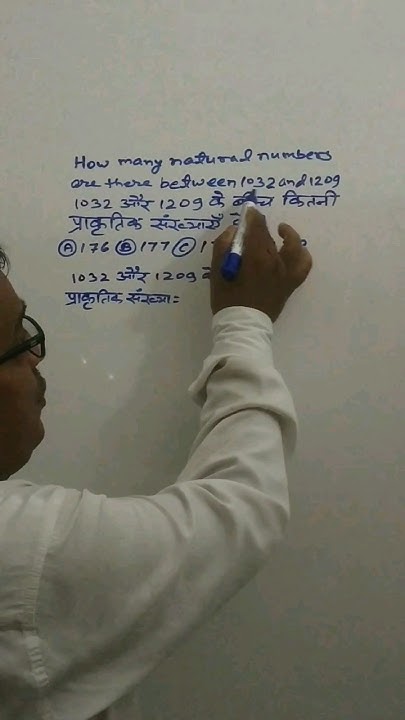 How many natural numbers
are there between 1032 and 1209
1032 और 1209 के बीच कितनी
प्राकृतिक संख्याएँ
(A) 176 (B) 177 (C)
1032 और 1209
प्राकृतिक संख्या =